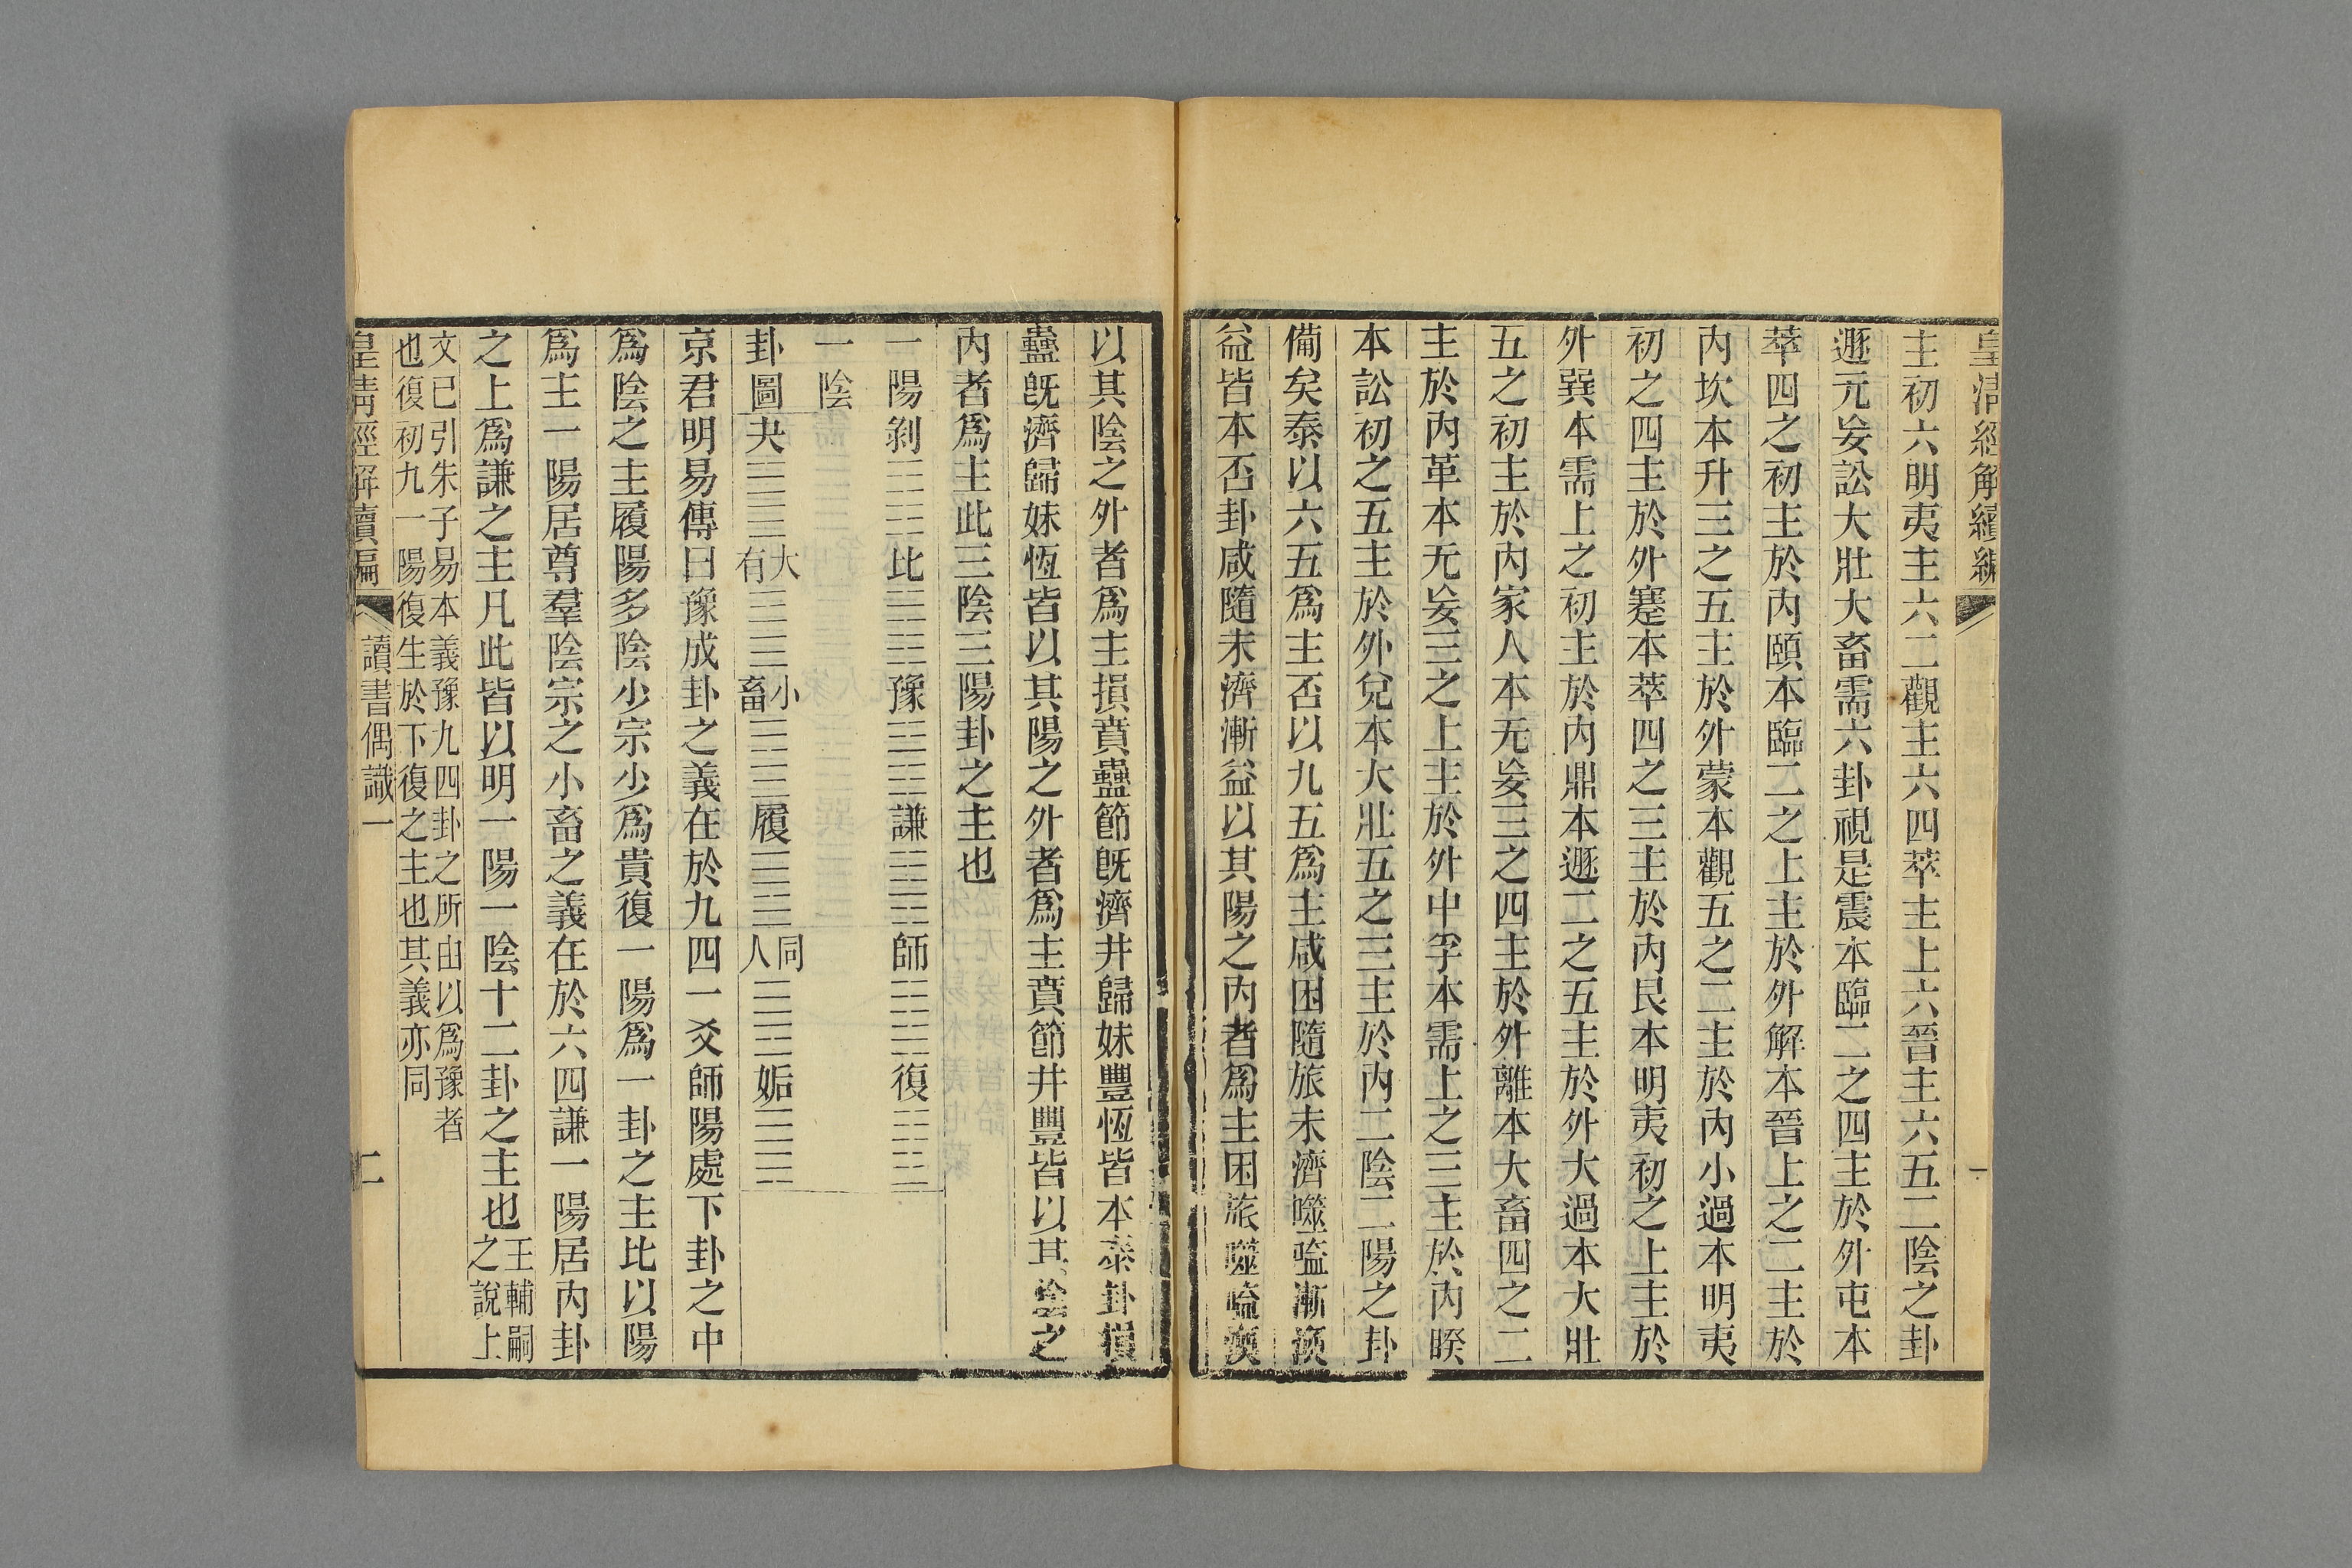 皇清經解續編
一
主初六明夷主六二觀主六四萃主上六晉主六五二陰之卦
遯元妄訟大壯大畜需六卦視是震本臨二之四主於外屯本
萃四之初主於內頤本臨二之上主於外解本晉上之二主於
內坎本升三之五主於外蒙本觀五之二主於內小過本明夷
初之四主於外蹇本萃四之三主於內艮本明夷初之上主於
外巽本需上之初主於內鼎本遯二之五主於外大過本大壯
五之初主於內家人本无妄三之四主於外離本大畜四之二
主於內革本无妄三之上主於外中孚本需上之三主於內睽
本訟初之五主於外兌本大壯五之三主於內二陰二陽之卦
備矣泰以六五爲主否以九五爲主咸困隨旅未濟噬嗑漸渙
益皆本否卦咸隨未濟漸益以其陽之內者爲主困旅噬嗑渙
以其陰之外者爲主損賁蠱節旣濟井歸妹豐恆皆本泰卦損
蠱旣濟歸妹恆皆以其陽之外者爲主賁節井豐皆以其陰之
內者爲主此三陰三陽卦之主也
一陽剝䷖比䷇豫䷏謙䷎師䷆復䷗
一陰
卦圖夬䷪大有䷍小畜䷈履䷉同人䷌姤䷫
京君明易傳曰豫成卦之義在於九四一爻師陽處下卦之中
爲陰之主履陽多陰少宗少爲貴復一陽爲一卦之主比以陽
爲主一陽居尊羣陰宗之小畜之義在於六四謙一陽居內卦
之上爲謙之主凡此皆以明一陽一陰十二卦之主也王輔嗣之說上
文已引朱子易本義豫九四卦之所由以爲豫者
也復初九一陽復生於下復之主也其義亦同
皇清經解續編
讀書偶識一
二